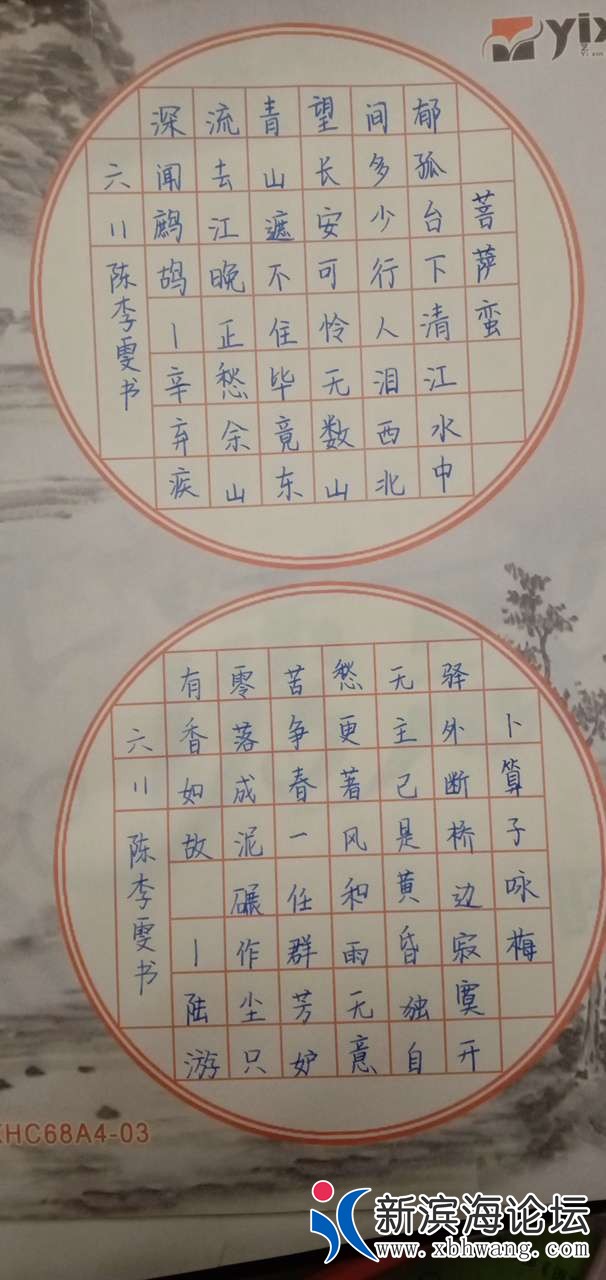 yix
菩萨蛮
郁孤台下清江水中
间多少行人泪西北
望长安可怜无数山
青山遮不住毕竟东
流去江晚正愁余山
深闻鹧鸪丨辛弃疾
六11陈李雯书
卜算子咏梅
驿外断桥边寂寞开
无主己是黄昏独自
愁更著风和雨无意
苦争春一任群芳妒
零落成泥碾作尘只
有香如故 丨陆游
六11陈李雯书
HC68A4-03
新滨海论坛
www.xbhwang.com